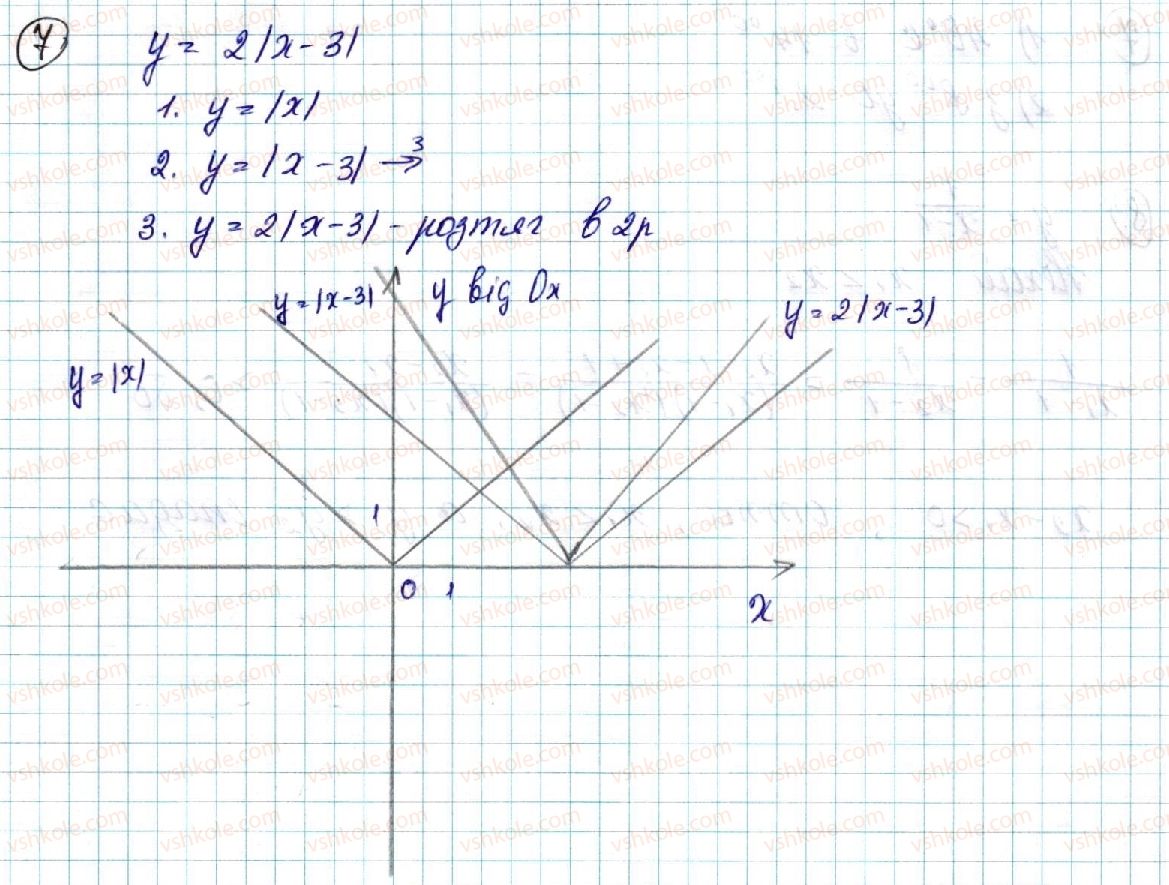 7 y = 2|x-3|
1. y = |x|
2. y = |x-3| →3
3. y = 2|x-3| - розтяг в 2р
y від Ox
y = |x-3|
y = 2|x-3|
y = |x|
1
0 1
x
vshkole.com